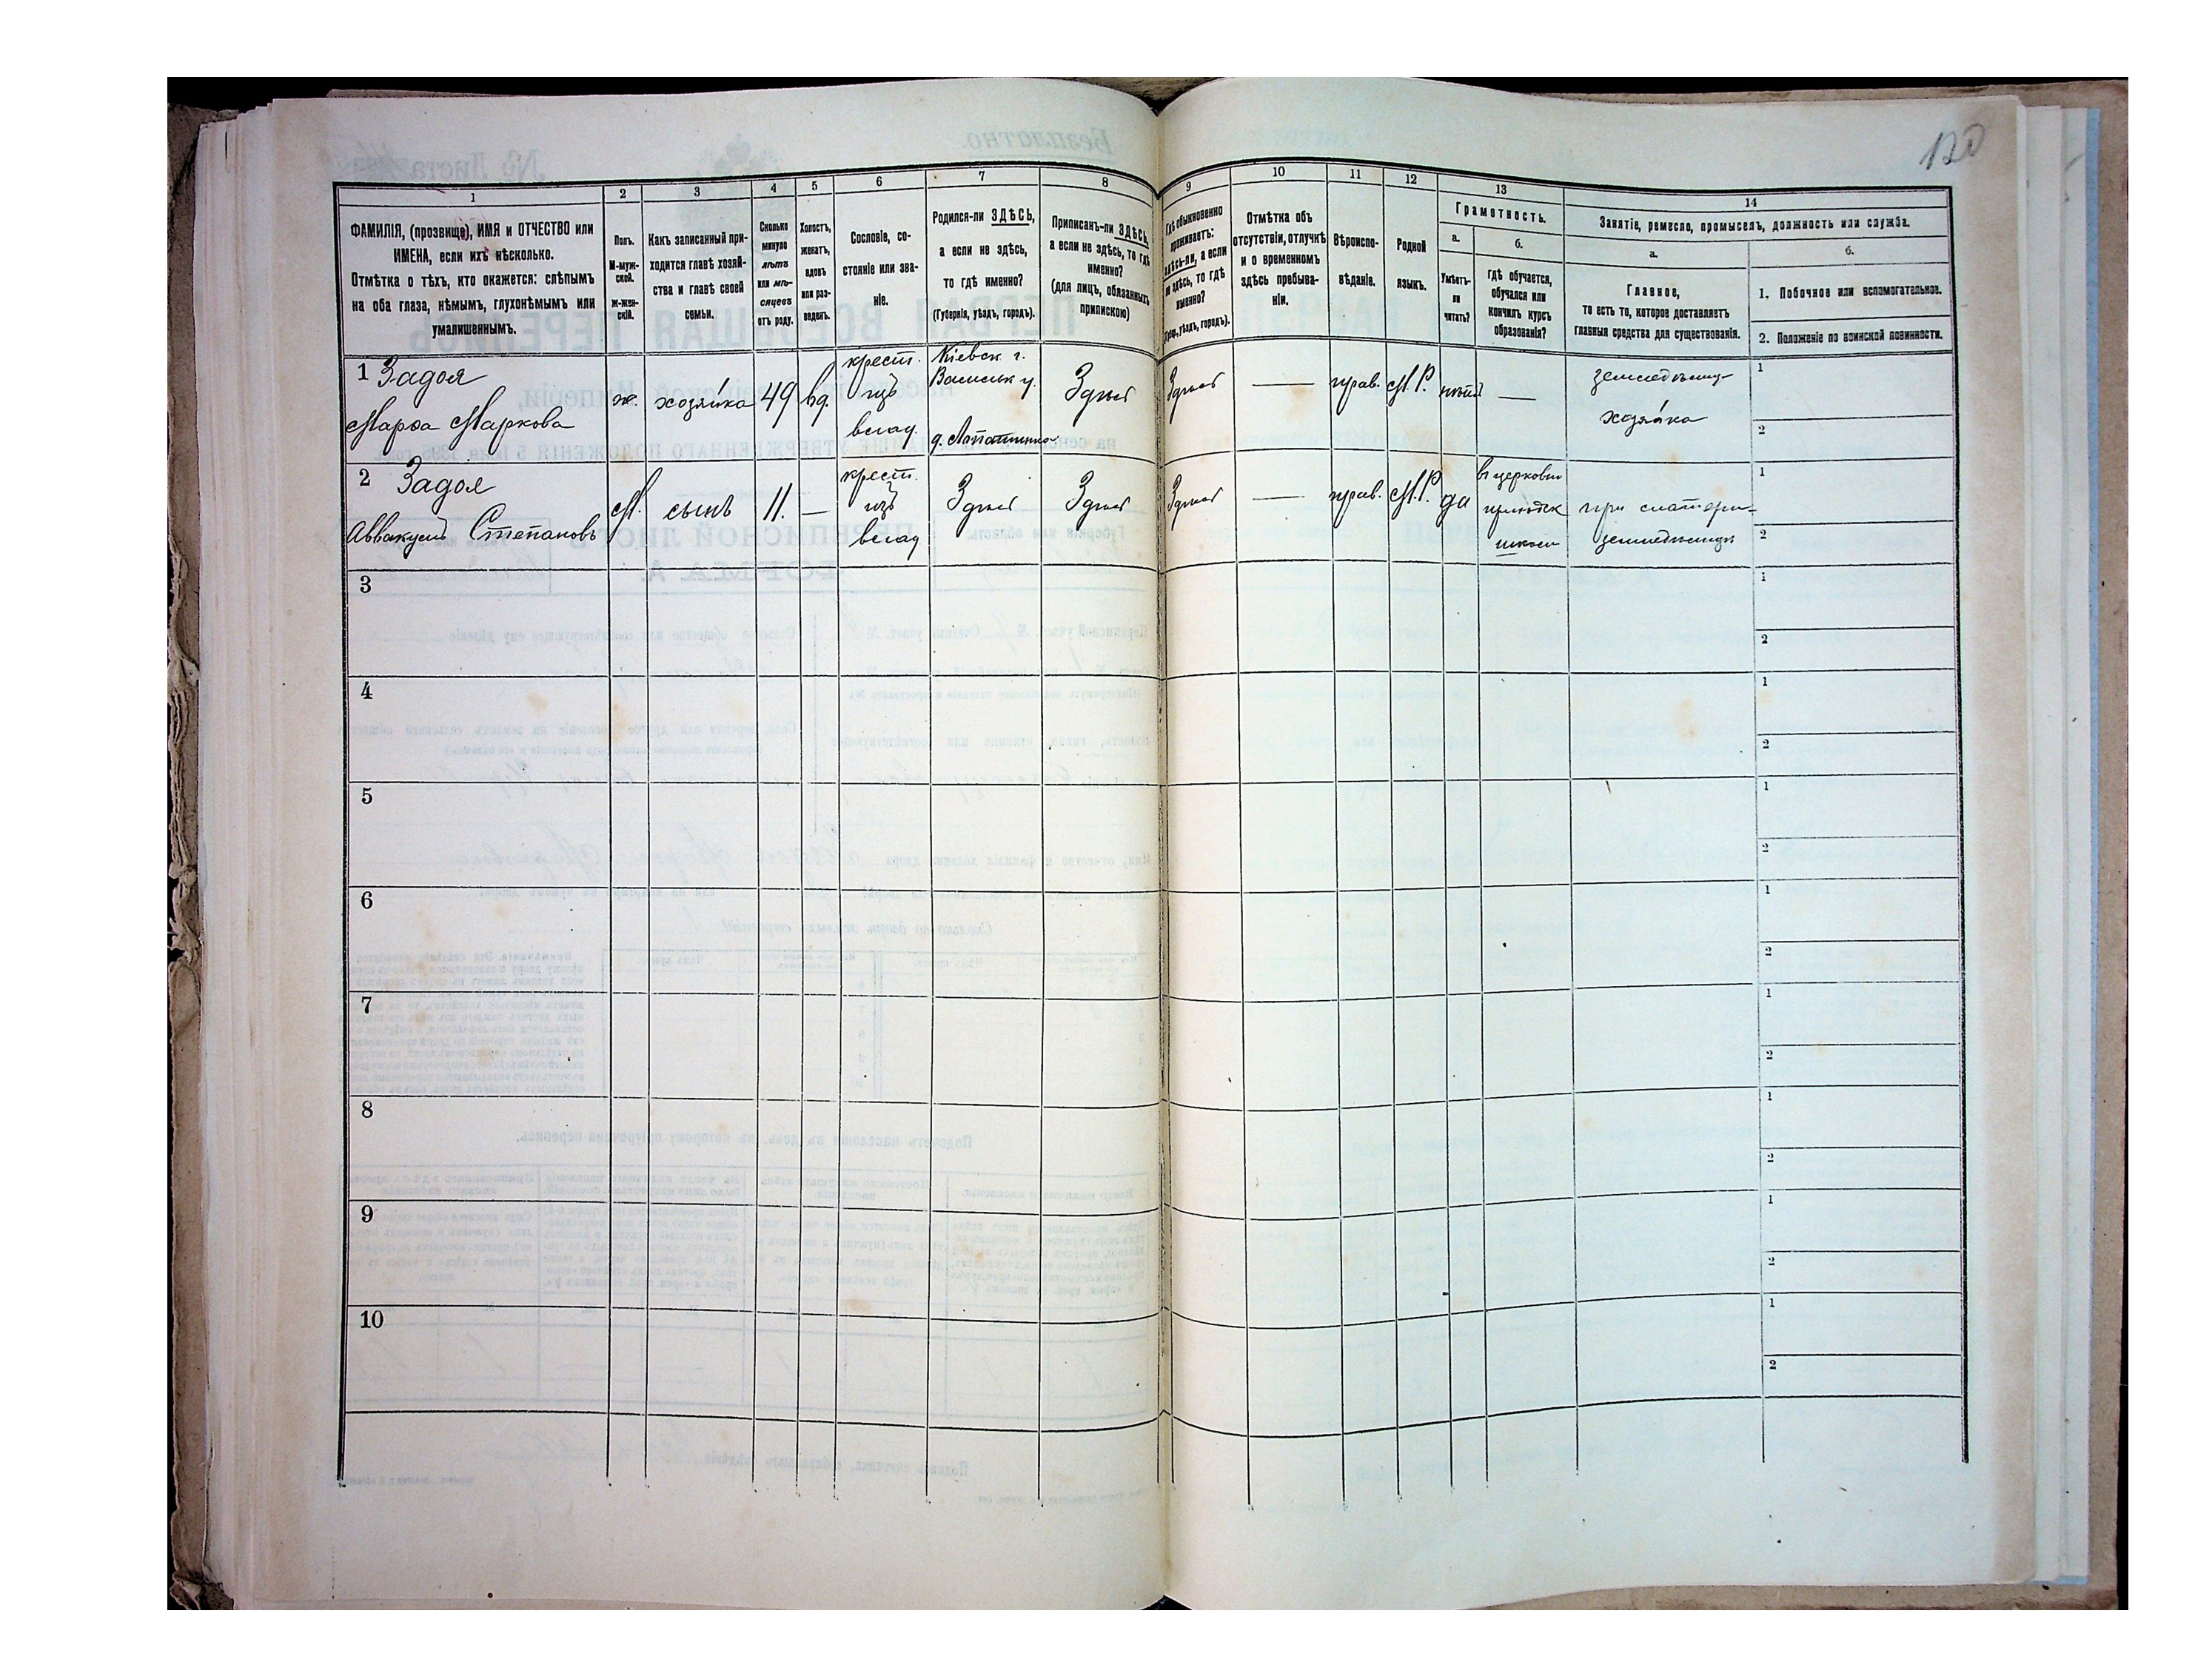 120
1
2
3
4
5
6
7
8
9
10
11
12
13
14
ФАМИЛІЯ, (прозвище), ИМЯ и ОТЧЕСТВО или
ИМЕНА, если ихъ нѣсколько.
Отмѣтка о тѣхъ, кто окажется: слѣпымъ
на оба глаза, нѣмымъ, глухонѣмымъ или
умалишеннымъ.
Полъ.
М-муж-
ской.
ж-жен-
скій.
Какъ записанный при-
ходится главѣ хозяй-
ства и главѣ своей
семьи.
Сколько
минуло
лѣтъ
или мѣ-
сяцевъ
отъ роду.
Холостъ,
женатъ,
вдовъ
или раз-
веденъ.
Сословіе, со-
стояніе или зва-
ніе.
Родился-ли ЗДѢСЬ,
а если не здѣсь,
то гдѣ именно?
(Губернія, уѣздъ, городъ).
Приписанъ-ли ЗДѢСЬ,
а если не здѣсь, то гдѣ
именно?
(для лицъ, обязанныхъ
припискою)
Гдѣ обыкновенно
проживаетъ:
здѣсь-ли, а если
не здѣсь, то гдѣ
именно?
(Губ., уѣздъ, городъ).
Отмѣтка объ
отсутствіи, отлучкѣ
и о временномъ
здѣсь пребыва-
ніи.
Вѣроиспо-
вѣданіе.
Родной
языкъ.
Грамотность.
а.
Умѣетъ-
ли
читать?
б.
Гдѣ обучается,
обучался или
кончилъ курсъ
образованія?
Занятіе, ремесло, промыселъ, должность или служба.
а.
Главное,
то есть то, которое доставляетъ
главныя средства для существованія.
б.
1. Побочное или вспомогательное.
2. Положеніе по воинской повинности.
1 Задоя
Марѳа Маркова
ж.
хозяйка
49
вд.
крест.
изъ
влад.
Кіевск. г.
Васильк у.
д. Лопатинка
Здѣсь
Здѣсь
—
прав.
М.Р.
нѣтъ
—
земледѣлица-
хозяйка
1
2
2 Задоя
Аввакумъ Степановъ
М.
сынъ
11.
—
крест.
изъ
влад
Здѣсь
Здѣсь
Здѣсь
—
прав.
М.Р.
да
въ церковн
приходск
школѣ
при матери-
земледѣлицѣ
1
2
3
1
2
4
1
2
5
1
2
6
1
2
7
1
2
8
1
2
9
1
2
10
1
2